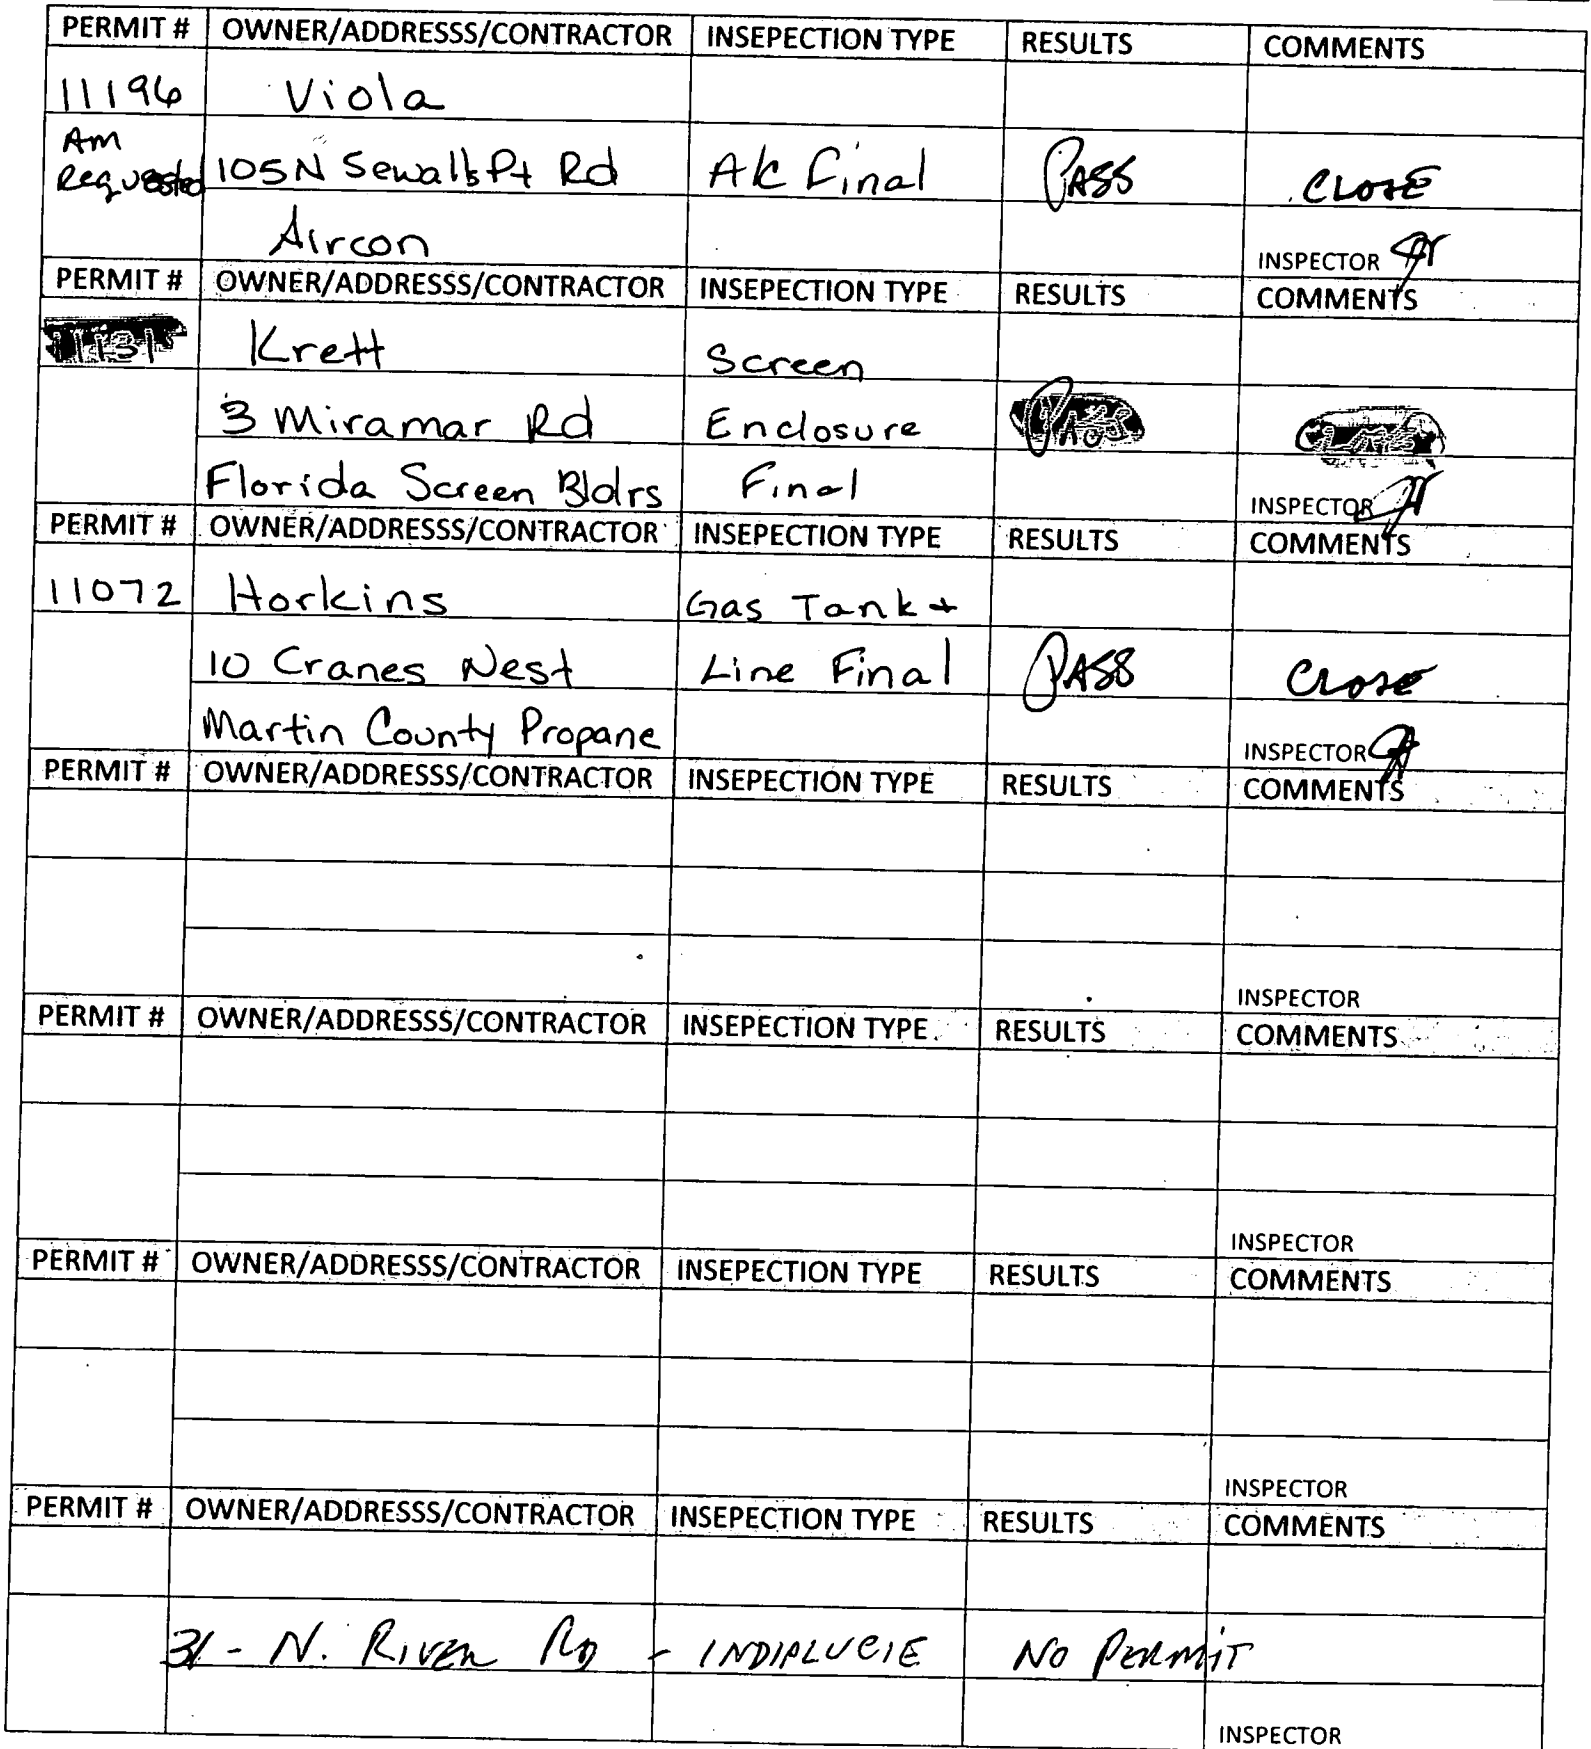 PERMIT # OWNER/ADDRESSS/CONTRACTOR INSEPECTION TYPE RESULTS COMMENTS
11196 Viola
Am Requested 105 N Sewalls Pt Rd A/c Final PASS CLOSE
Aircon
INSPECTOR
PERMIT # OWNER/ADDRESSS/CONTRACTOR INSEPECTION TYPE RESULTS COMMENTS
11131 Krett Screen
3 Miramar Rd Enclosure PASS CLOSE
Florida Screen Bldrs Final
INSPECTOR
PERMIT # OWNER/ADDRESSS/CONTRACTOR INSEPECTION TYPE RESULTS COMMENTS
11072 Horkins Gas Tank +
10 Cranes Nest Line Final PASS CLOSE
Martin County Propane
INSPECTOR
PERMIT # OWNER/ADDRESSS/CONTRACTOR INSEPECTION TYPE RESULTS COMMENTS
INSPECTOR
PERMIT # OWNER/ADDRESSS/CONTRACTOR INSEPECTION TYPE RESULTS COMMENTS
INSPECTOR
PERMIT # OWNER/ADDRESSS/CONTRACTOR INSEPECTION TYPE RESULTS COMMENTS
INSPECTOR
PERMIT # OWNER/ADDRESSS/CONTRACTOR INSEPECTION TYPE RESULTS COMMENTS
31 - N. RIVER RD - INDIALUCIE NO PERMIT
INSPECTOR